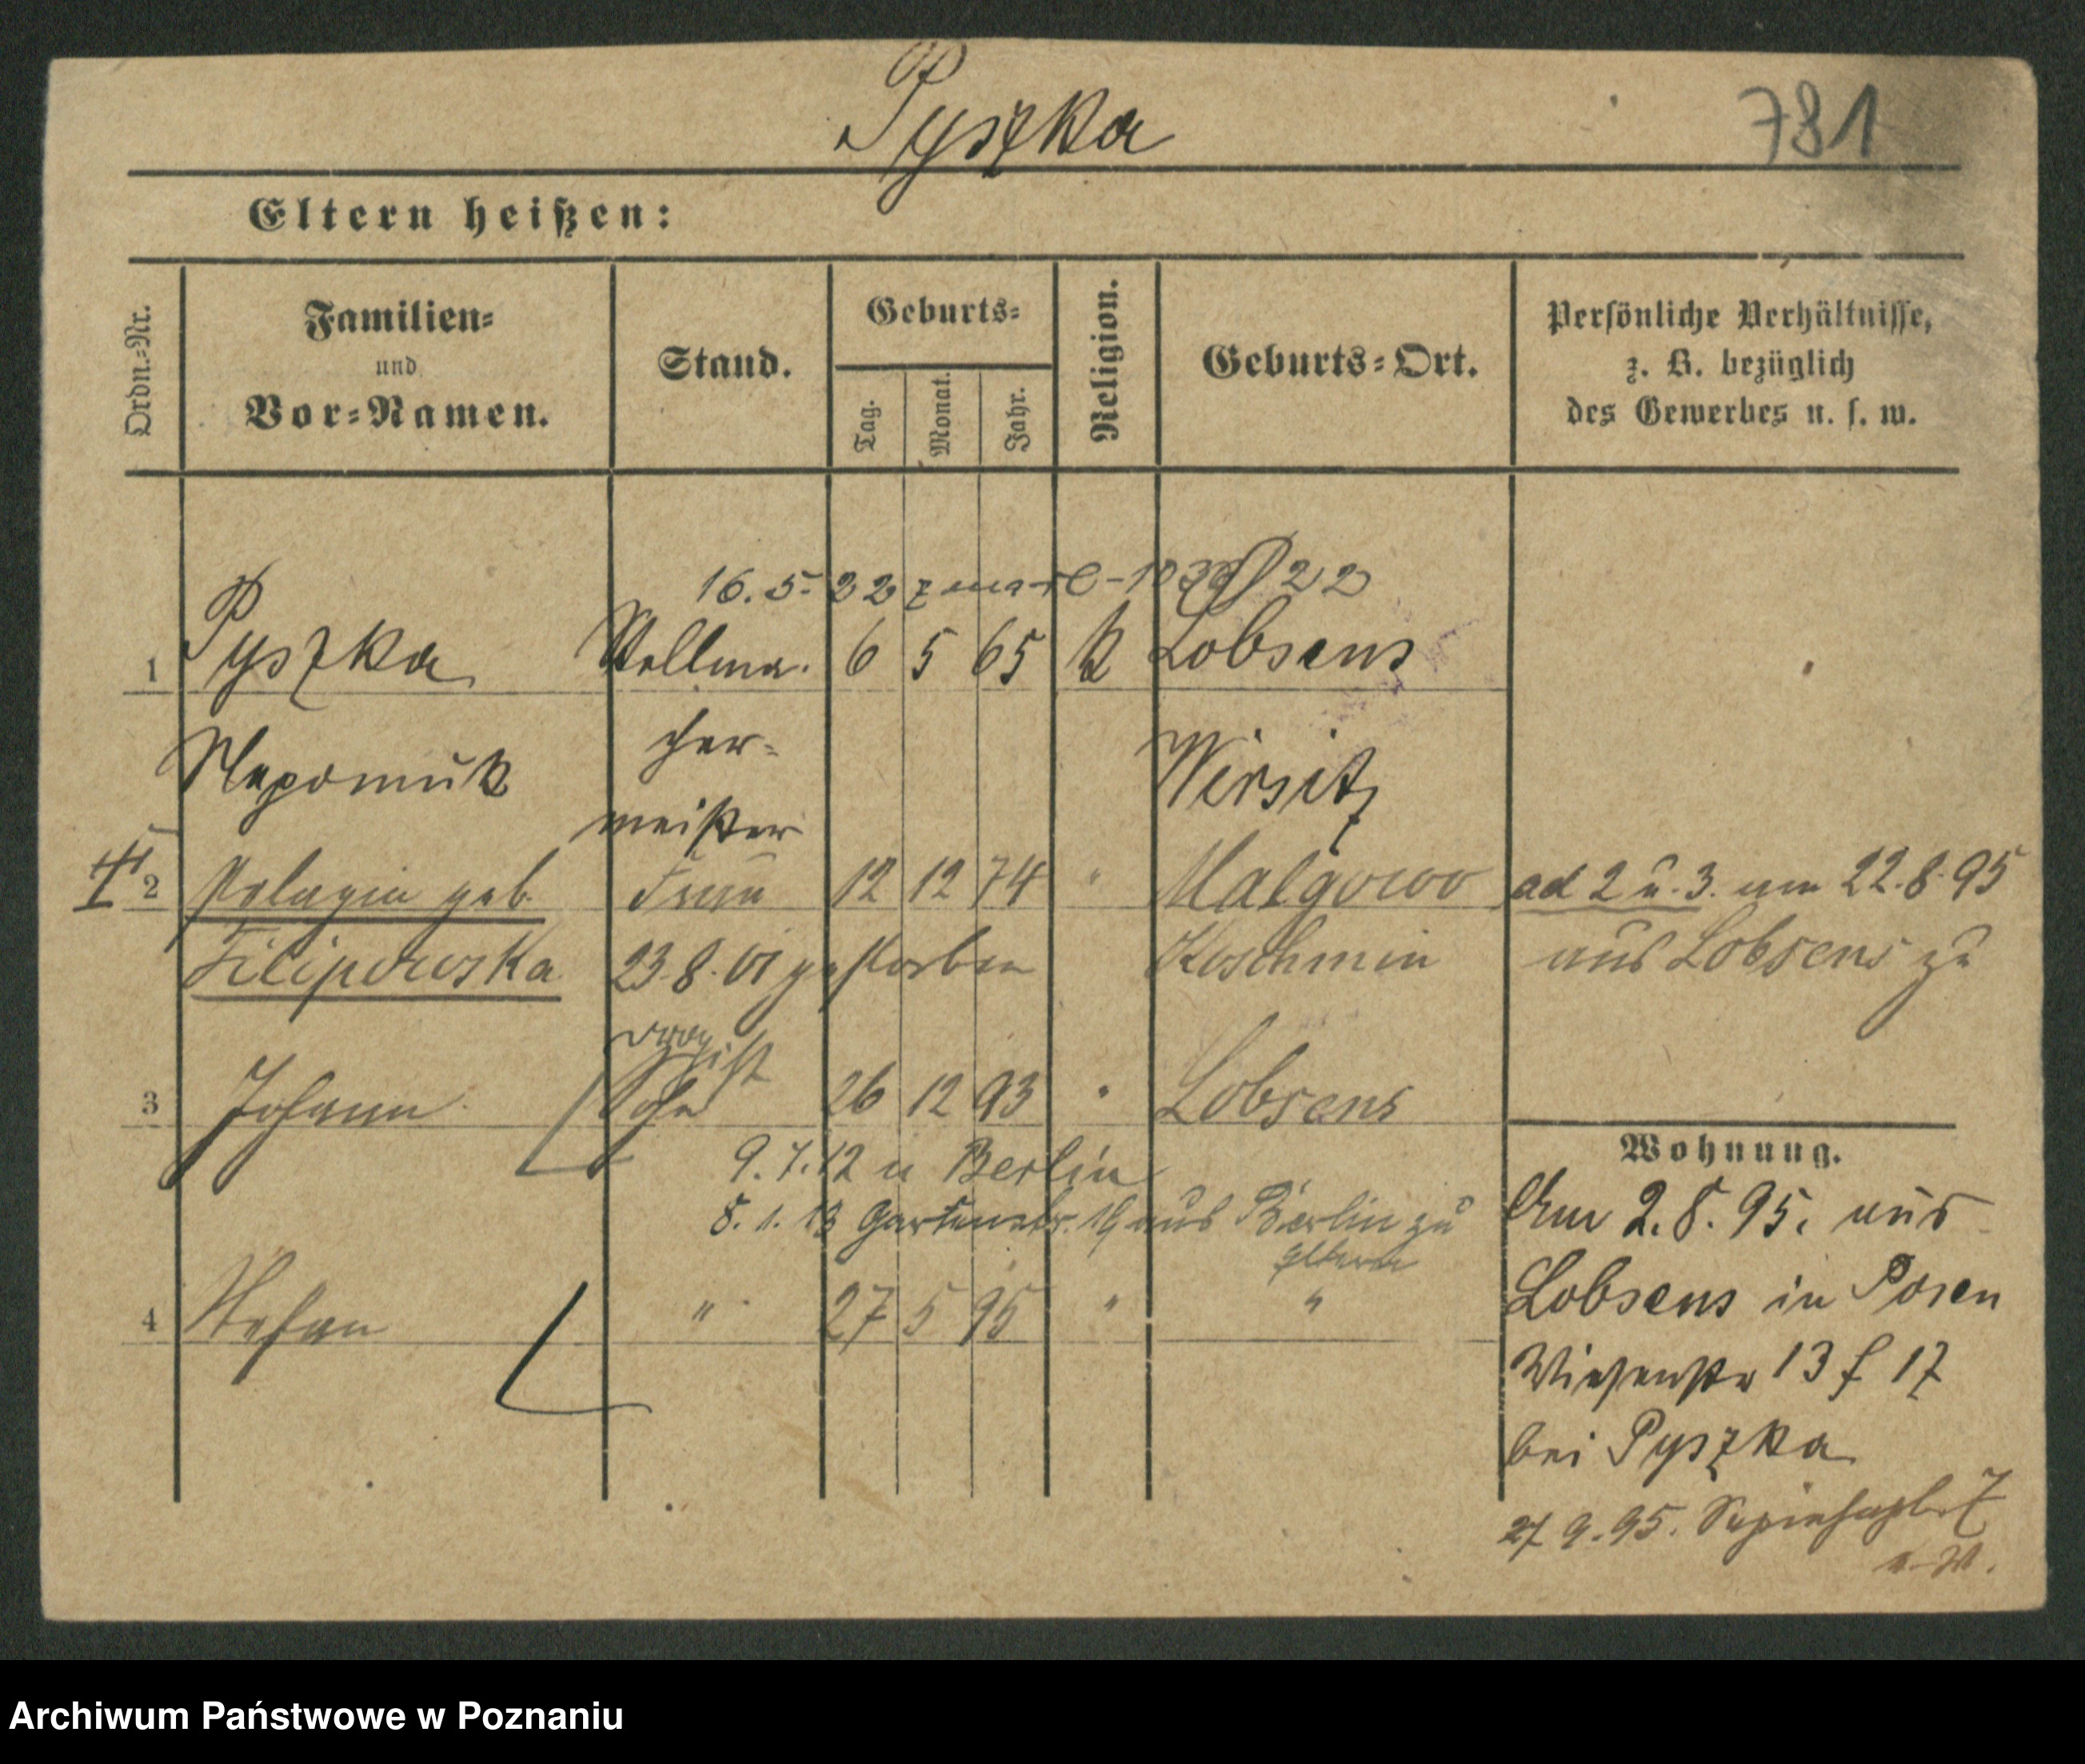 Pyszka
781
Eltern heißen:
Ordn.-Nr.
Familien-
und
Vor-Namen.
Stand.
Geburts-
Tag.
Monat.
Jahr.
Religion.
Geburts-Ort.
Persönliche Verhältnisse,
z. B. bezüglich
des Gewerbes u. s. w.
16.5.22 zmarł
1 Pyszka Stellma. 6 5 65 k Lobsens
Nepomuk cher- Wirsitz
meister
2 Pelagia geb. Frau 12 12 74 " Malgowo ad 2 u. 3. am 22.8.95
Filipowska 23.8.01 gestorben Koschmin aus Lobsens zu
Drogist
3 Johann Sohn 26 12 93 " Lobsens
9.7.12 n Berlin
8.1.13 Gartenstr. 19 aus Berlin zu
Eltern
4 Stefan " 27 5 95 " "
Wohnung.
Am 2.8.95. aus
Lobsens in Posen
Wiesenstr 13 f 17
bei Pyszka
27 9.95.
Archiwum Państwowe w Poznaniu